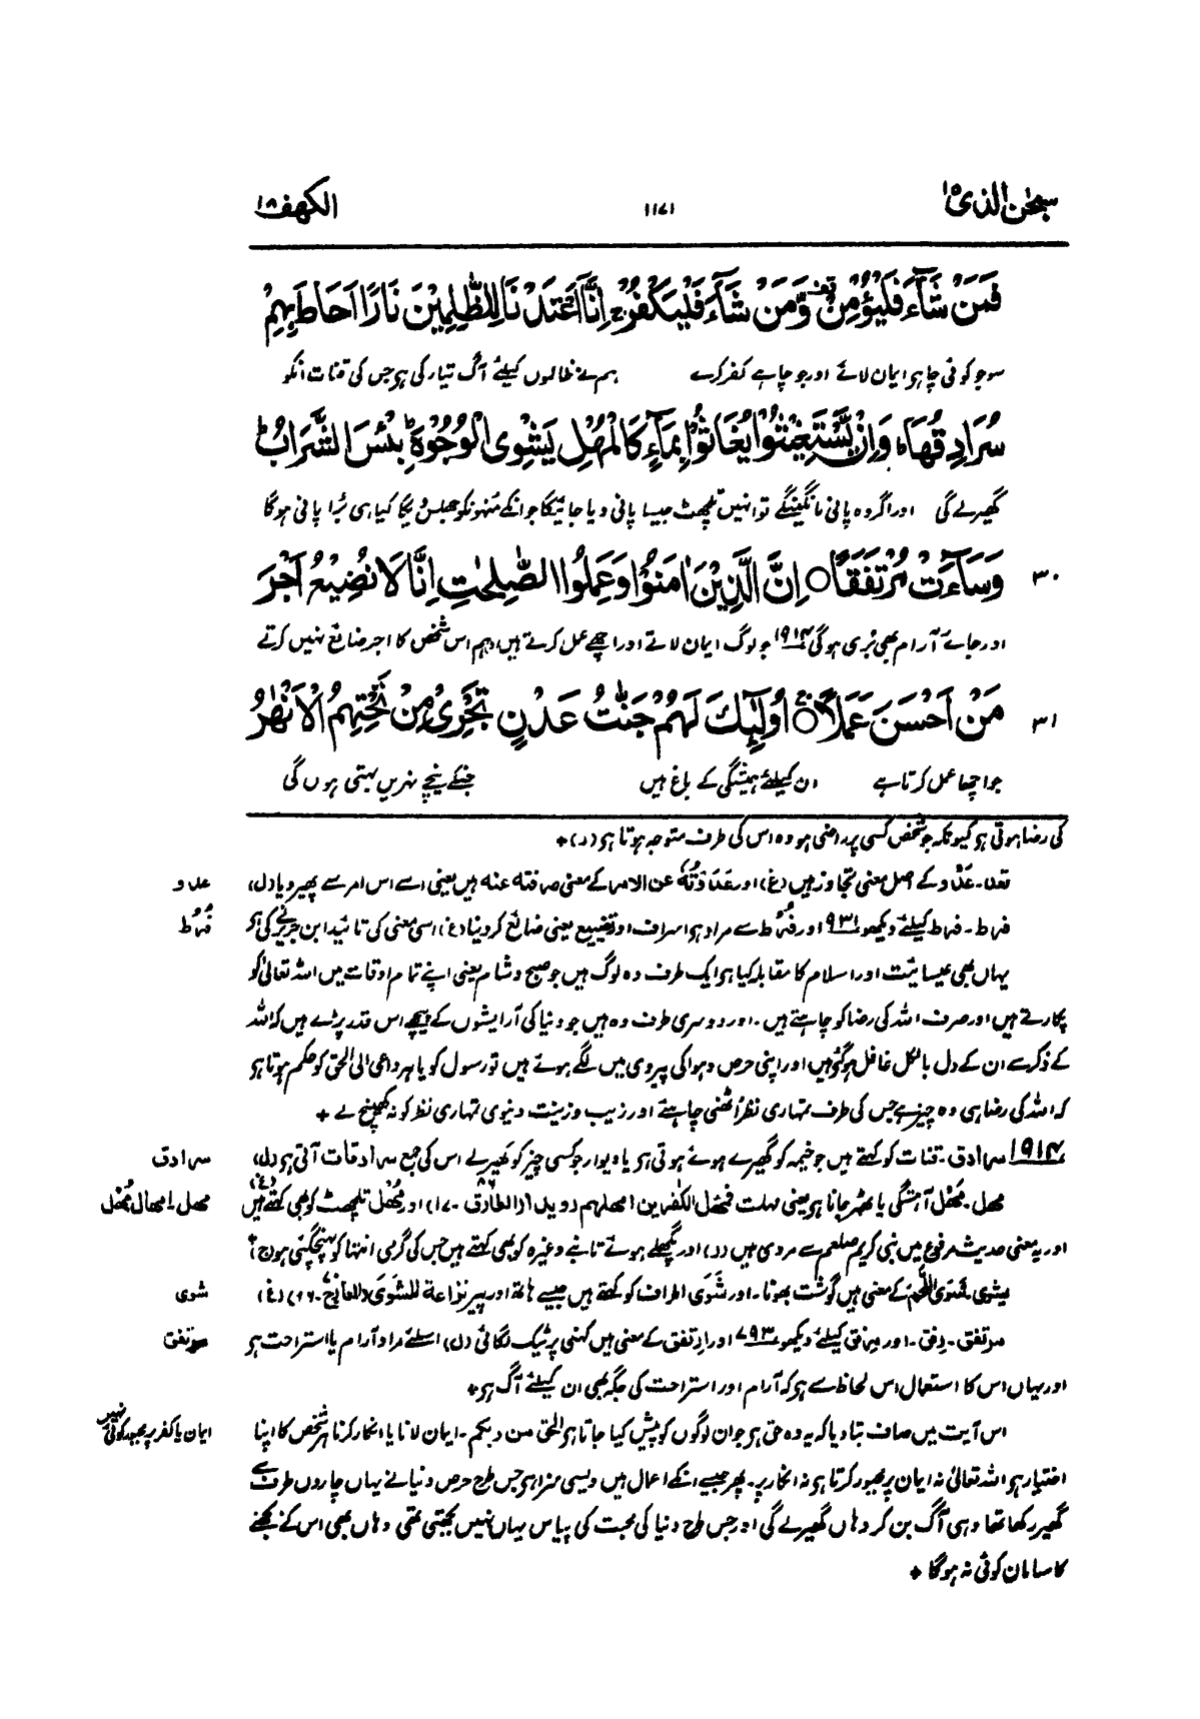 سبحٰن الذی ۱۵
۱۱۷۱
الکہف ۱۸
فَمَنْ شَآءَ فَلْيُؤْمِنْ وَّمَنْ شَآءَ فَلْيَكْفُرْ ۙ اِنَّآ اَعْتَدْنَا لِلظّٰلِمِيْنَ نَارًا اَحَاطَ بِهِمْ
سو جو کوئی چاہے ایمان لائے اور جو چاہے کفر کرے ہم نے ظالموں کیلئے آگ تیار کی ہے جس کی قنات انکو
سُرَادِقُهَا ؕ وَاِنْ يَّسْتَغِيْثُوْا يُغَاثُوْا بِمَآءٍ كَالْمُهْلِ يَشْوِى الْوُجُوْهَ ؕ بِئْسَ الشَّرَابُ ؕ
گھیرے گی اور اگر وہ پانی مانگینگے تو انہیں تلچھٹ جیسا پانی دیا جائیگا جو انکے مُنہونکو جھلس دیگا کیا ہی بُرا پانی ہوگا
۳۰ وَسَآءَتْ مُرْتَفَقًا ○ اِنَّ الَّذِيْنَ اٰمَنُوْا وَعَمِلُوا الصّٰلِحٰتِ اِنَّا لَا نُضِيْعُ اَجْرَ
اور جائے آرام بھی بُری ہوگی ۱۹۱۴ جو لوگ ایمان لاتے اور اچھے عمل کرتے ہیں، ہم اس شخص کا اجر ضائع نہیں کرتے
۳۱ مَنْ اَحْسَنَ عَمَلًا ○ۚ اُولٰٓئِكَ لَهُمْ جَنّٰتُ عَدْنٍ تَجْرِىْ مِنْ تَحْتِهِمُ الْاَنْهٰرُ
جو اچھا عمل کرتا ہے ان کیلئے ہمیشگی کے باغ ہیں جنکے نیچے نہریں بہتی ہوں گی
کی رضا ہوتی ہے کیونکہ جو شخص کسی پر راضی ہو وہ اس کی طرف متوجہ ہوتا ہے (ر) +
تعد۔ عَدْو کے اصل معنی تجاوز ہیں (غ) اور عَدَوْتُهٗ عن الامر کے معنی صرفته عنه ہیں یعنی اسے اس امر سے پھیر دیا (ل)
عدو
فرط۔ فرط کیلئے دیکھو ۹۳۱ اور فُرُط سے مراد ہے اسراف اور تضییع یعنی ضائع کر دینا (غ) اسی معنی کی تائید ابن جریر نے کی ہے
فُرُط
یہاں بھی عیسائیت اور اسلام کا مقابلہ کیا ہے ایک طرف وہ لوگ ہیں جو صبح و شام یعنی اپنے تمام اوقات میں اللہ تعالیٰ کو
پکارتے ہیں اور صرف اللہ کی رضا کو چاہتے ہیں۔ اور دوسری طرف وہ ہیں جو دنیا کی آرایشوں کے پیچھے اس قدر پڑے ہیں کہ اللہ
کے ذکر سے ان کے دل بالکل غافل ہو گئے ہیں اور اپنی حرص و ہوا کی پیروی میں لگے ہوئے ہیں تو رسول کو یا ہر داعی الی الحق کو حکم ہوتا ہے
کہ اللہ کی رضا ہی وہ چیز ہے جس کی طرف تمہاری نظر اُٹھنی چاہئے اور زیب و زینت دنیوی تمہاری نظر کو نہ کھینچ لے +
۱۹۱۴ سرادق۔ قنات کو کہتے ہیں جو خیمہ کو گھیرے ہوئے ہوتی ہے یا دیوار جو کسی چیز کو گھیر لے اس کی جمع سرادقات آتی ہے (ل)
سرادق
مھل۔ مَھْل آہستگی یا ٹھہر جانا ہے یعنی مہلت فمھل الکٰفرین امھلھم رویدا (الطارق۔۱۷) اور مُھْل تلچھٹ کو بھی کہتے ہیں (غ)
مھل۔ امھال مُھْل
اور یہ معنی حدیث مرفوع میں نبی کریم صلعم سے مروی ہیں (ر) اور پگھلے ہوئے تانبے وغیرہ کو بھی کہتے ہیں جس کی گرمی انتہا کو پہنچ گئی ہو (ج) +
یشوی۔ شَوَی اللحم کے معنی ہیں گوشت بھونا۔ اور شَوَی اطراف کو کہتے ہیں جیسے ہاتھ اور پیر نزاعة للشوی (المعارج۔۱۶) (غ)
شوی
مرتفق۔ رفق۔ اور مرفق کیلئے دیکھو ۷۹۳ اور ارتفق کے معنی ہیں کہنی پر ٹیک لگائی (ل) اسلئے مراد آرام یا استراحت ہے
مرتفق
اور یہاں اس کا استعمال اس لحاظ سے ہے کہ آرام اور استراحت کی جگہ بھی ان کیلئے آگ ہے +
اس آیت میں صاف بتا دیا کہ یہ وہ حق ہے جو ان لوگوں کو پیش کیا جاتا ہے الحق من ربکم۔ ایمان لانا یا انکار کرنا ہر شخص کا اپنا
ایمان یا کفر پر مجبور کوئی نہیں
اختیار ہے اللہ تعالیٰ نہ ایمان پر مجبور کرتا ہے نہ انکار پر۔ پھر جیسے انکے اعمال ہیں ویسی سزا ہے جس طرح حرص دنیا نے یہاں چاروں طرف سے
گھیر رکھا تھا وہی آگ بن کر وہاں گھیرے گی اور جس طرح دنیا کی محبت کی پیاس یہاں نہیں بجھتی تھی وہاں بھی اس کے بجھنے
کا سامان کوئی نہ ہوگا +